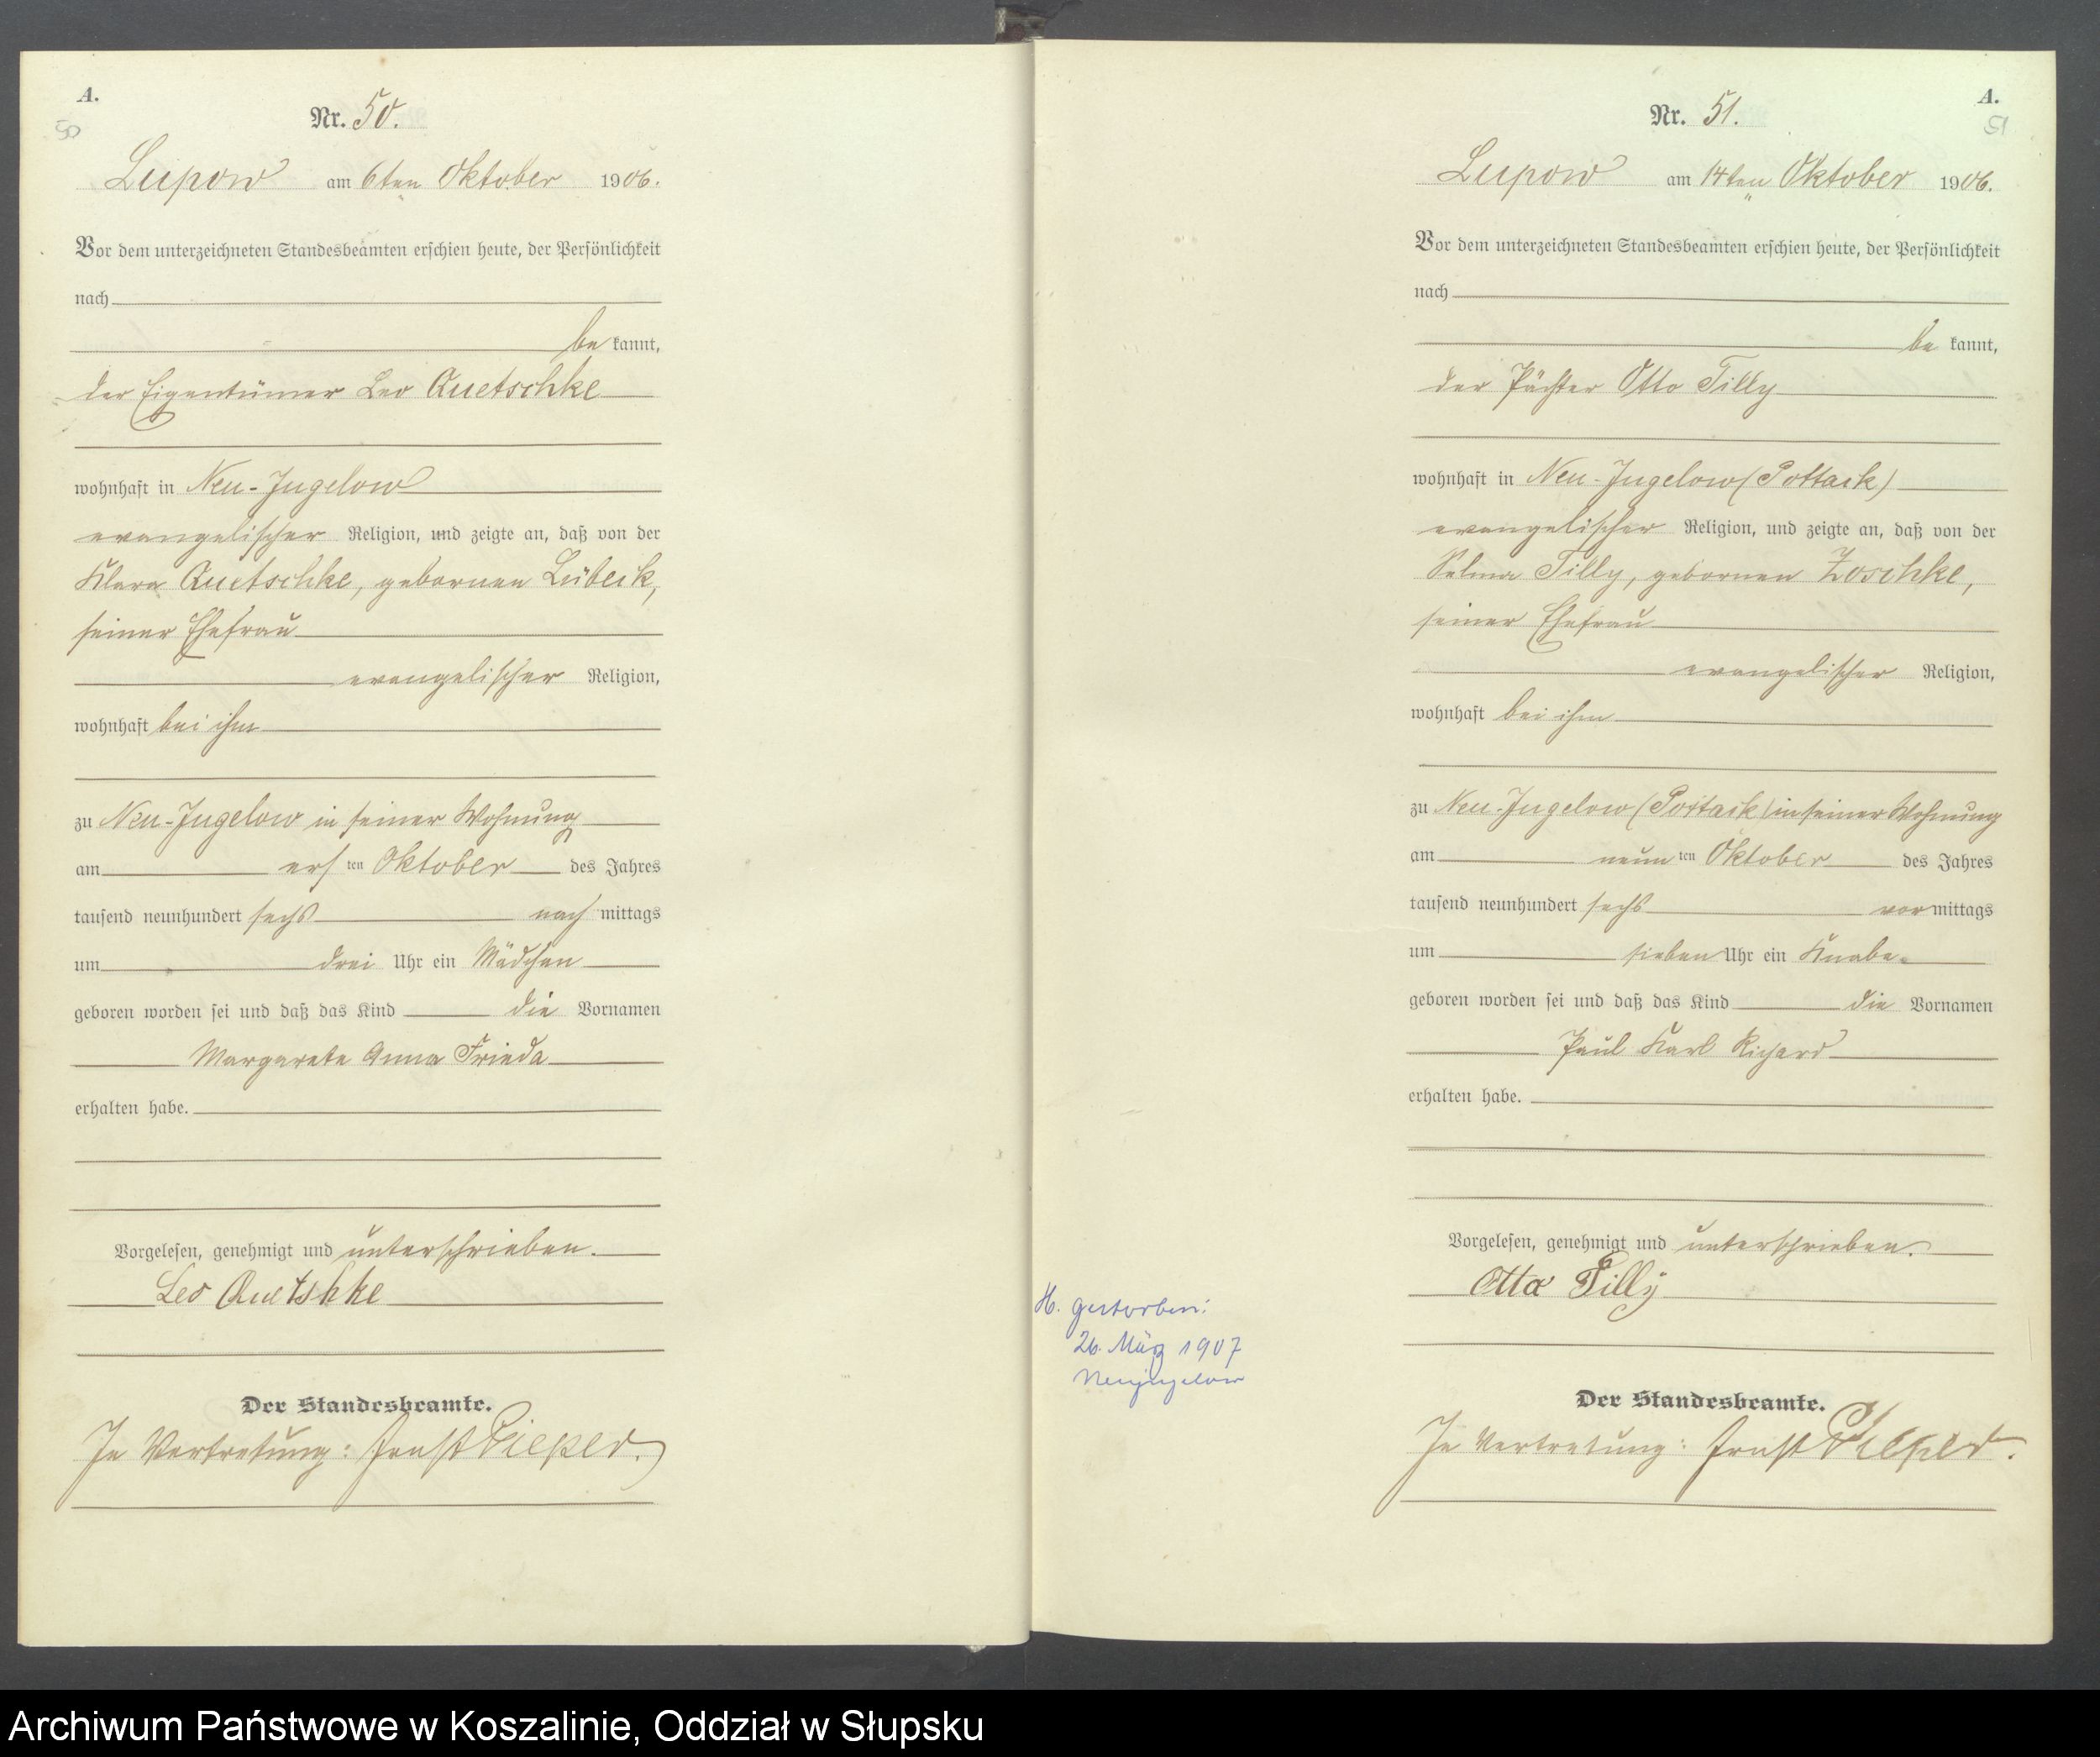 A.
50
Nr. 50.
Lupow am 6ten Oktober 1906.
Vor dem unterzeichneten Standesbeamten erschien heute, der Persönlichkeit
nach
be kannt,
der Eigentümer Leo Quetschke
wohnhaft in Neu-Jugelow
evangelischer Religion, und zeigte an, daß von der
Klara Quetschke, geborenen Lübeck,
seiner Ehefrau
evangelischer Religion,
wohnhaft bei ihm
zu Neu-Jugelow in seiner Wohnung
am ers ten Oktober des Jahres
tausend neunhundert sechs nach mittags
um drei Uhr ein Mädchen
geboren worden sei und daß das Kind die Vornamen
Margarete Anna Frieda
erhalten habe.
Vorgelesen, genehmigt und unterschrieben.
Leo Quetshke
Der Standesbeamte.
In Vertretung: Ernst Pieper.
A.
51
Nr. 51.
Lupow am 14ten Oktober 1906.
Vor dem unterzeichneten Standesbeamten erschien heute, der Persönlichkeit
nach
be kannt,
der Pächter Otto Tilly
wohnhaft in Neu-Jugelow (Pottack)
evangelischer Religion, und zeigte an, daß von der
Selma Tilly, geborenen Zoschke,
seiner Ehefrau
evangelischer Religion,
wohnhaft bei ihm
zu Neu-Jugelow (Pottack) in seiner Wohnung
am neun ten Oktober des Jahres
tausend neunhundert sechs vor mittags
um sieben Uhr ein Knabe
geboren worden sei und daß das Kind die Vornamen
Paul Karl Richard
erhalten habe.
Vorgelesen, genehmigt und unterschrieben.
Otto Tilly
H. gestorben:
26. März 1907
Neujugelow
Der Standesbeamte.
In Vertretung: Ernst Pieper.
Archiwum Państwowe w Koszalinie, Oddział w Słupsku